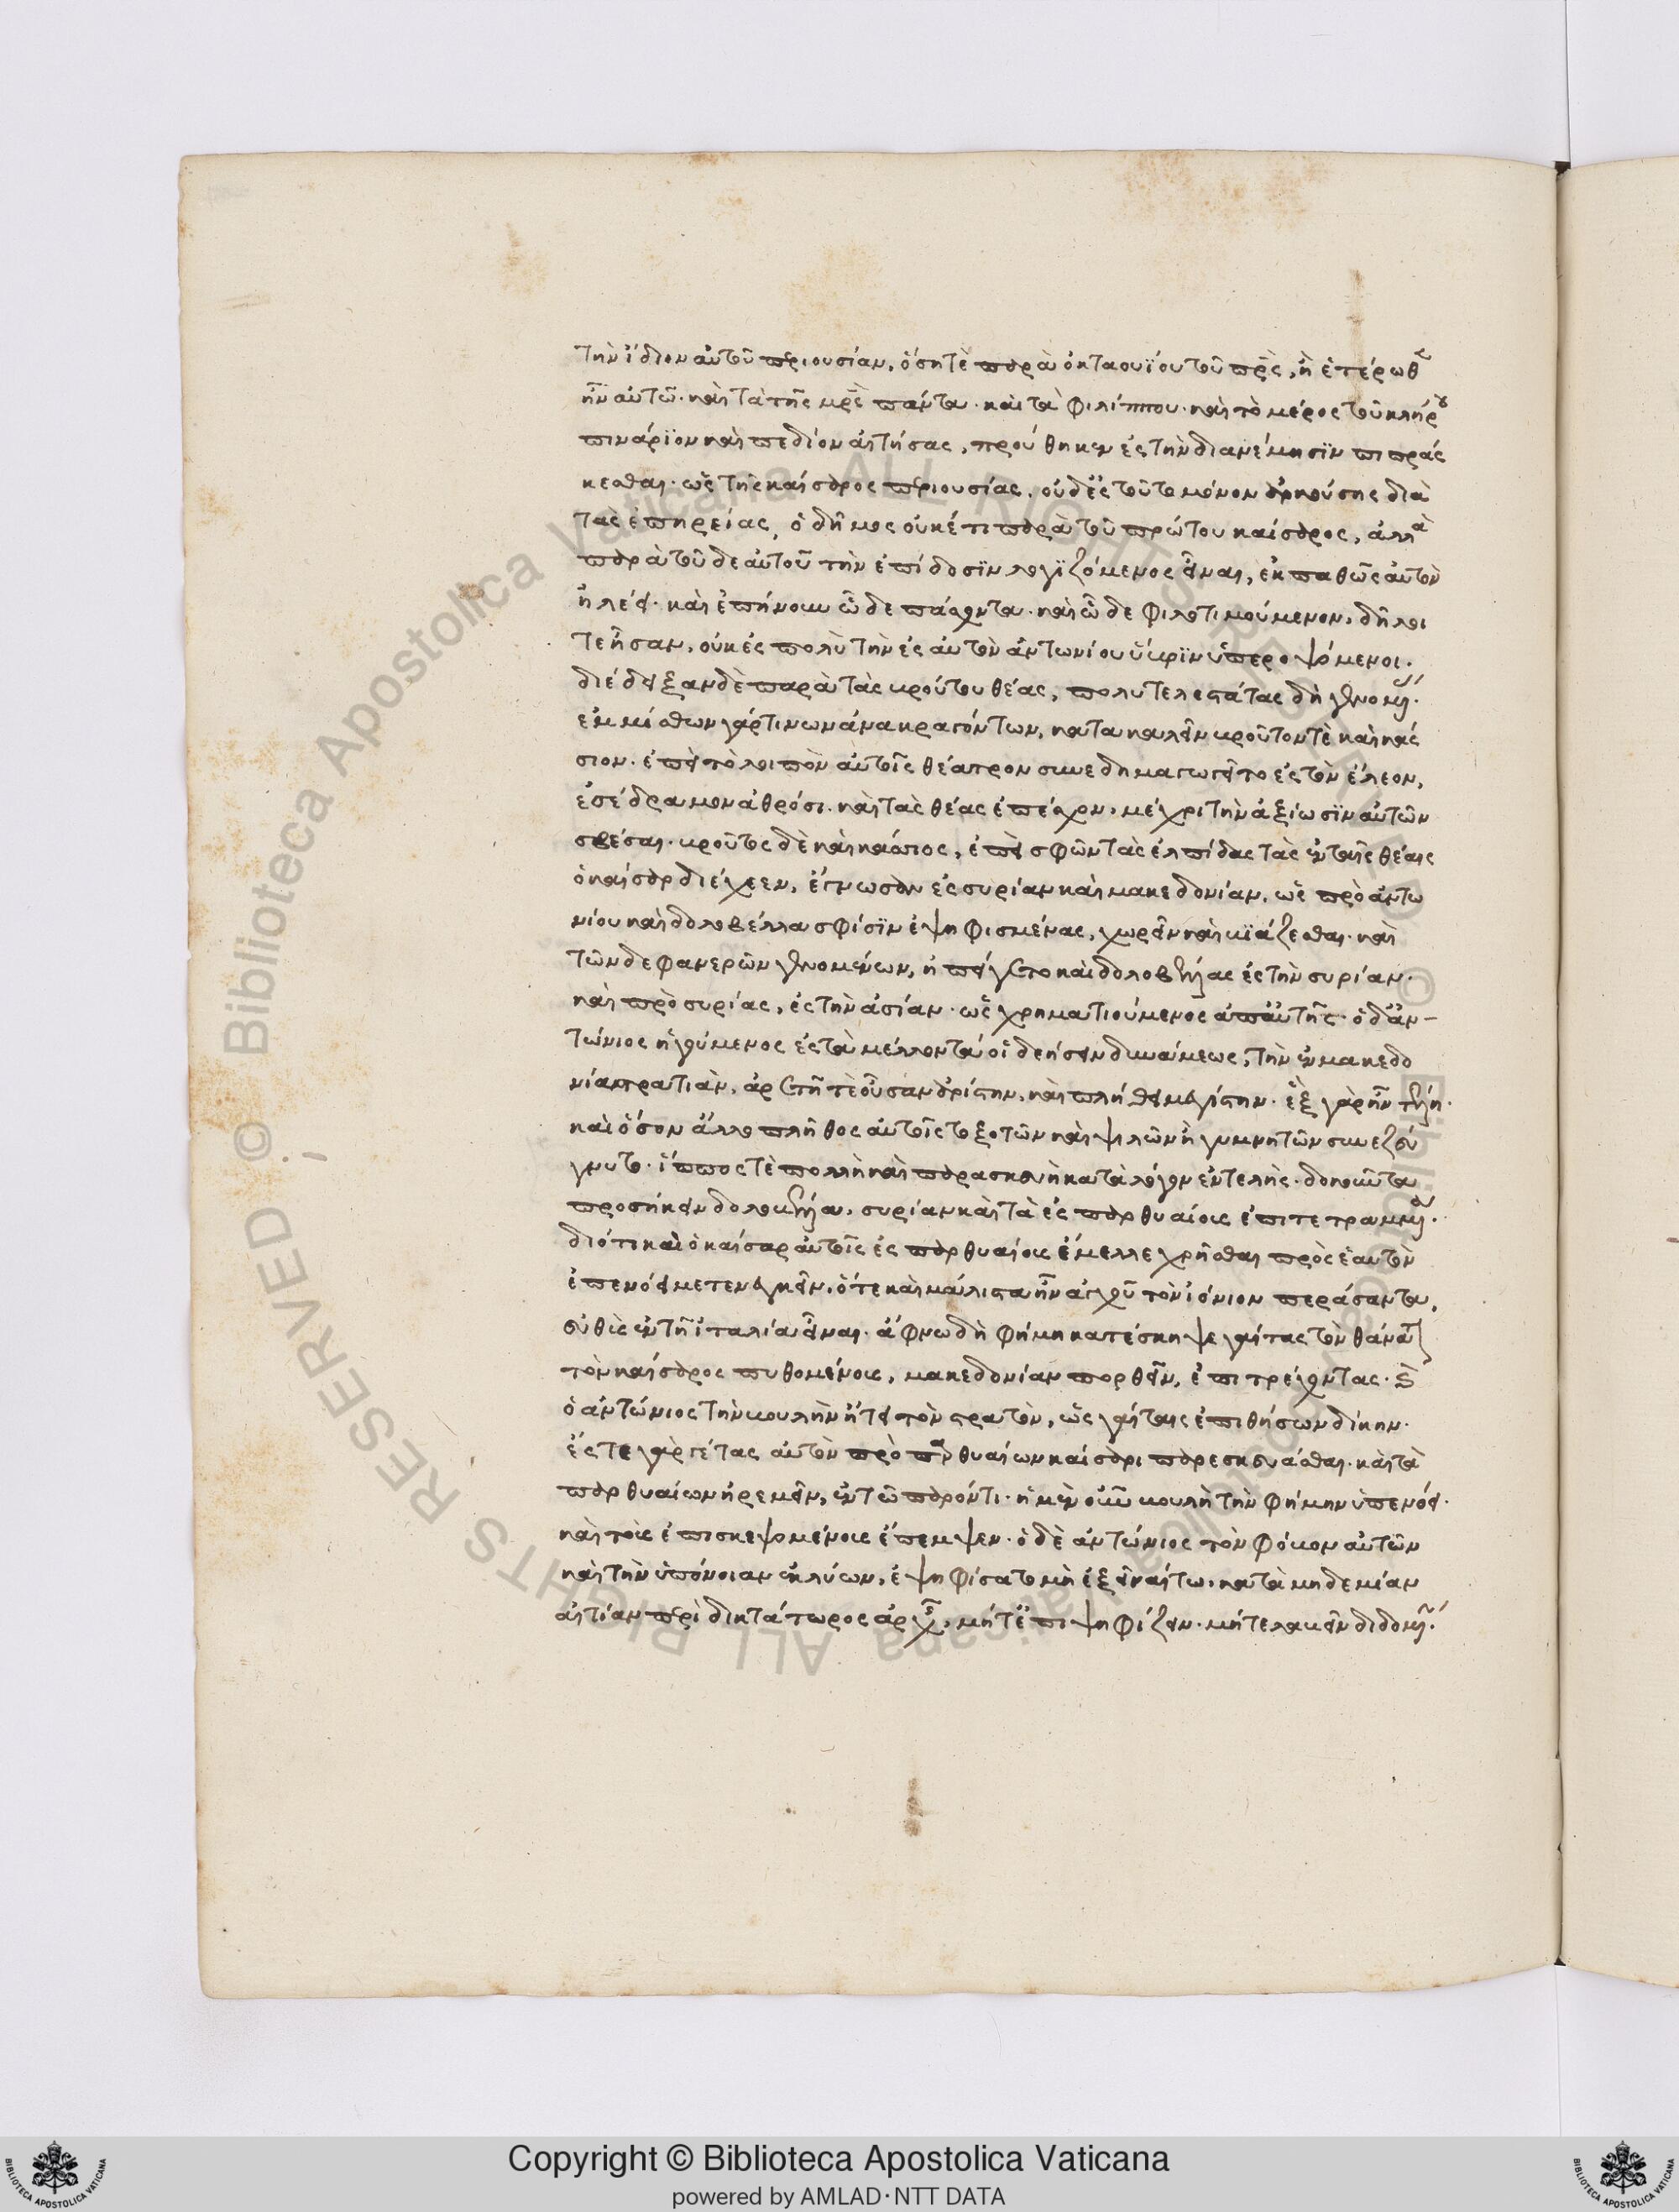 τὴν ἴδιον αὐτοῦ περιουσίαν, ὅση τὲ παρὰ ὀκταουΐου τοῦ πρς, ἢ ἑτέρωθ
ἦν αὐτῶ. καὶ τὰ τῆς μρς πάντα. καὶ τὰ φιλίππου. καὶ τὸ μέρος τοῦ κλήρου
πινάριον καὶ πεδίον αἰτήσας, προύθηκεν ἐς τὴν διανέμησϊν πιπράς
κεσθαι. ὡς τῆς καίσαρος περιουσίας. οὐδ ἐς τοῦτο μόνον ἀρκούσης διὰ
τὰς ἐπηρείας, ὁ δῆμος οὐκέτι παρὰ τοῦ πρώτου καίσαρος, ἀλλὰ
παρὰ τοῦδε αὐτοῦ τὴν ἐπίδοσϊν λογϊζόμενος εἶναι, ἐκπαθῶς αὐτὸν
ἠλέει. καὶ ἐπήνουν ὧδε πάσχοντα. καὶ ὧδε φιλοτιμούμενον, δῆλοι
τε ἦσαν, οὐκ ἐς πολὺ τὴν ἐς αὐτὸν ἀντωνίου ὕβρϊν ὑπεροψόμενοι.
διέδειξαν δὲ παρὰ τὰς βρούτου θέας, πολυτελεστάτας δὴ γενομέ.
ἐμμίσθων γάρ τινων ἀνακραγόντων, κατακαλεῖν βροῦτον τὲ καὶ κάς
σιον. ἐπεὶ τὸ λοιπὸν αὐτοῖς θέατρον συνεδημαγωγεῖτο ἐς τὸν ἔλεον,
ἐσέδραμον ἀθρόοι. καὶ τὰς θέας ἐπέσχον, μέχρι τὴν ἀξίωσϊν αὐτῶν
σβέσαι. βροῦτος δὲ καὶ κάσσιος, ἐπεὶ σφῶν τὰς ἐλπίδας τὰς ἐν ταῖς θέαις
ὁ καίσαρ διέχεεν, ἔγνωσαν ἐς συρίαν καὶ μακεδονίαν, ὡς πρὸ ἀντω
νίου καὶ δολοβέλλα σφίσϊν ἐψηφισμένας, χωρεῖν καὶ βϊάζεσθαι. καὶ
τῶνδε φανερῶν γενομένων, ἠπείγετο καὶ δολοβέλλας ἐς τὴν συρίαν.
καὶ πρὸ συρίας, ἐς τὴν ἀσίαν. ὡς χρηματιούμενος ἀπ αὐτῆς. ὁ δ ἀν-
τώνιος ἡγούμενος ἐς τὰ μέλλοντά οἱ δεήσειν δυνάμεως, τὴν ἐν μακεδο
νία στρατιὰν, ἀρετῆ τὲ οὖσαν ἀρίστην, καὶ πλήθει μεγίστην. ἓξ γὰρ ἦν τέλη.
καὶ ὅσον ἄλλο πλῆθος αὐτοῖς τοξοτῶν καὶ ψιλῶν ἢ γυμνητῶν συνεζεύ
γνυτο. ἵππος τὲ πολλὴ καὶ παρασκευὴ κατὰ λόγον ἐντελὴς. δοκοῦντα
προσήκειν δολοβέλλα, συρίαν καὶ τὰ ἐς παρθυαίους ἐπιτετραμμέ.
διότι καὶ ὁ καίσαρ αὐτοῖς ἐς παρθυαίους ἔμελλε χρῆσθαι πρὸς ἑαυτὸν
ἐπενόει μετενεγκεῖν, ὅτε καὶ μάλιστα ἦν ἀγχοῦ τὸν ἰόνιον περάσαντα,
εὐθὺς ἐν τῆ ἰταλία εἶναι. ἄφνω δὴ φήμη κατέσκηψε γέτας τὸν θάνατ
τὸν καίσαρος πυθομένους, μακεδονίαν πορθεῖν, ἐπιτρέχοντας. καὶ
ὁ ἀντώνιος τὴν βουλὴν ἤτει τὸν στρατὸν, ὡς γέταις ἐπιθήσων δίκην.
ἔς τε γὰρ γέτας αὐτὸν πρὸ παρθυαίων καίσαρι παρεσκευάσθαι. καὶ τὰ
παρθυαίων ἠρεμεῖν, ἐν τῶ παρόντι. ἡ μὲν οὖν βουλὴ τὴν φήμην ὑπενόει.
καὶ τοὺς ἐπισκεψομένους ἔπεμψεν. ὁ δὲ ἀντώνιος τὸν φόβον αὐτῶν
καὶ τὴν ὑπόνοιαν ἐκλύων, ἐψηφίσατο μὴ ἐξεῖναί τω, κατὰ μηδεμίαν
αἰτίαν περὶ δικτάτωρος ἀρχῆς, μήτε ἐπιψηφίζειν. μήτε λαβεῖν διδομέ.
Copyright © Biblioteca Apostolica Vaticana
powered by AMLAD·NTT DATA